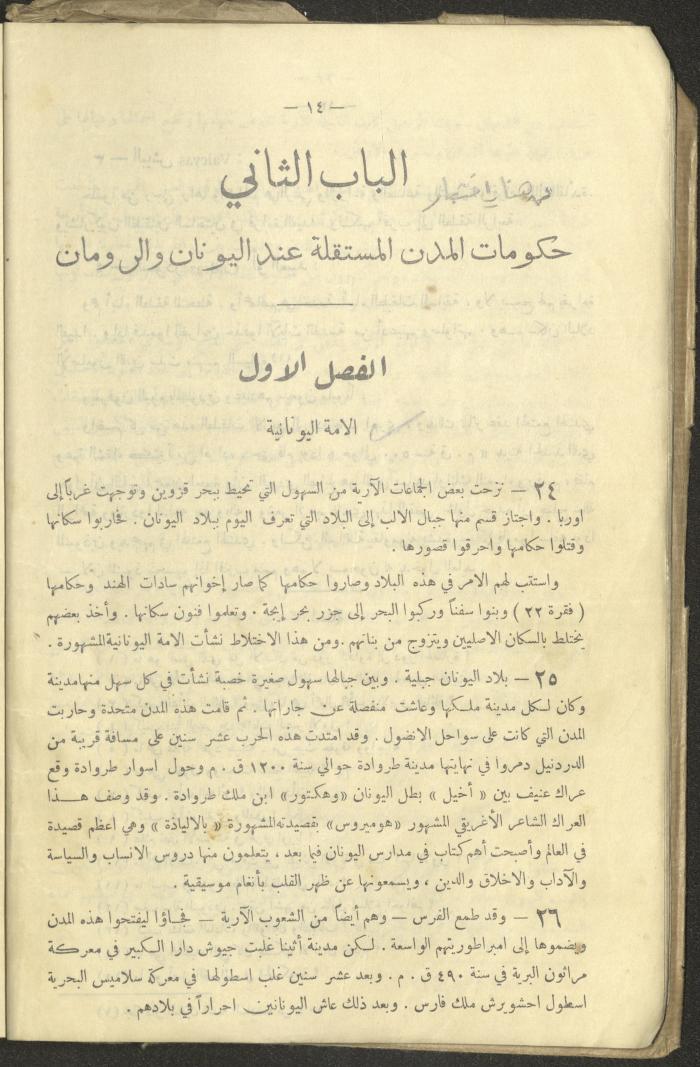 — ١٤ —
الباب الثاني
حكومات المدن المستقلة عند اليونان والرومان
الفصل الاول
الامة اليونانية
٢٤ — نزحت بعض الجماعات الآرية من السهول التي تحيط ببحر قزوين وتوجهت غرباً إلى
اوربا . واجتاز قسم منها جبال الالب إلى البلاد التي تعرف اليوم ببلاد اليونان . فحاربوا سكانها
وقتلوا حكامها واحرقوا قصورها .
واستقب لهم الامر في هذه البلاد وصاروا حكامها كما صار إخوانهم سادات الهند وحكامها
( فقرة ٢٢ ) وبنوا سفناً وركبوا البحر إلى جزر بحر إيجة . وتعلموا فنون سكانها . وأخذ بعضهم
يختلط بالسكان الاصليين ويتزوج من بناتهم .ومن هذا الاختلاط نشأت الامة اليونانيةالمشهورة .
٢٥ — بلاد اليونان جبلية . وبين جبالها سهول صغيرة خصبة نشأت في كل سهل منهامدينة
وكان لكل مدينة ملكها وعاشت منفصلة عن جاراتها . ثم قامت هذه المدن متحدة وحاربت
المدن التي كانت على سواحل الانضول . وقد امتدت هذه الحرب عشر سنين على مسافة قريبة من
الدردنيل دمروا في نهايتها مدينة طروادة حوالي سنة ١٢٠٠ ق . م وحول اسوار طروادة وقع
عراك عنيف بين « أخيل » بطل اليونان «وهكتور» ابن ملك طروادة . وقد وصف هـذا
العراك الشاعر الأغريقي المشهور «هوميروس» بقصيدتهالمشهورة « بالالياذة » وهي اعظم قصيدة
في العالم وأصبحت أهم كتاب في مدارس اليونان فيما بعد ، يتعلمون منها دروس الانساب والسياسة
والآداب والاخلاق والدين ، ويسمعونها عن ظهر القلب بأنغام موسيقية .
٢٦ — وقد طمع الفرس — وهم أيضاً من الشعوب الآرية — فجاؤا ليفتحوا هذه المدن
ويضموها إلى امبراطوريتهم الواسعة . لكن مدينة أثينا غلبت جيوش دارا الكبير في معركة
مراثون البرية في سنة ٤٩٠ ق . م . وبعد عشر سنين غلب اسطولها في معركة سلاميس البحرية
اسطول احشويرش ملك فارس . وبعد ذلك عاش اليونانيين احراراً في بلادهم .